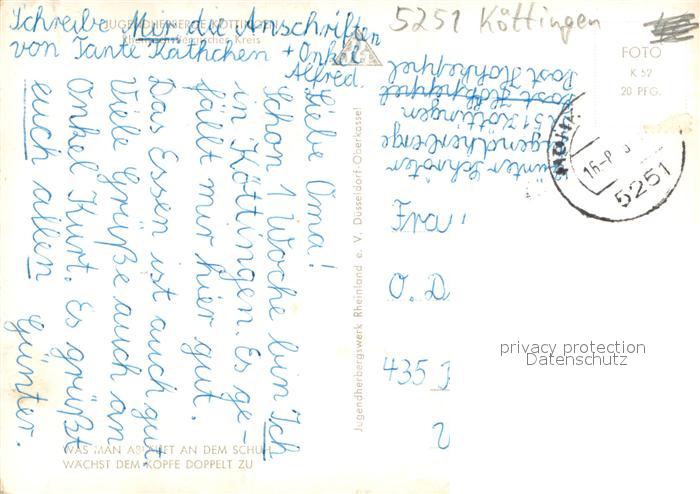 JUGENDHERBERGE KÖTTINGEN
Rheinisch-Bergischer Kreis
Schreibe Mir die Anschriften
von Tante Käthchen + Onkel
Alfred.
Liebe Oma!
Schon 1 Woche bin Ich
in Köttingen. Es ge-
fällt mir hier gut.
Das Essen ist auch gut
Viele Grüße auch an
Onkel Kurt. Es grüßt
euch allen
Günter.
WAS MAN ABLÄUFT AN DEM SCHUH
WÄCHST DEM KOPFE DOPPELT ZU
Jugendherbergswerk Rheinland e. V. Düsseldorf-Oberkassel
5251 Köttingen
FOTO
K 52
20 PFG.
Günter Schröter
Jugendherberge
5251 Köttingen
Post Hohkeppel
16.-8.
5251
Frau
O. D
435
privacy protection
Datenschutz